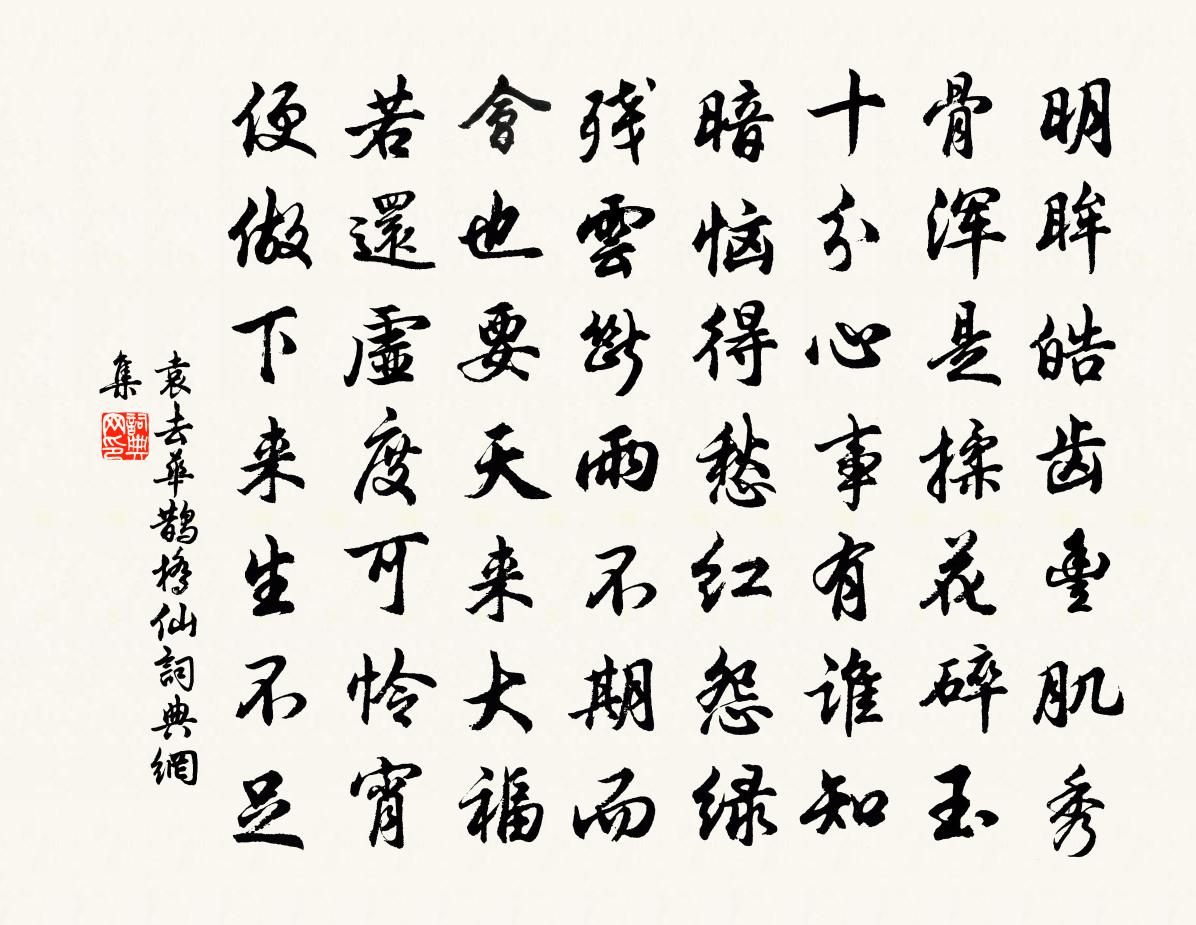 明眸皓齿豊肌秀
骨浑是揉花碎玉
十分心事有谁知
暗恼得愁红怨绿
残雲断雨不期而
會也要天来大福
若還虚度可怜宵
便做下来生不足
袁去华鹊橋仙詞典網
集
詞典網印